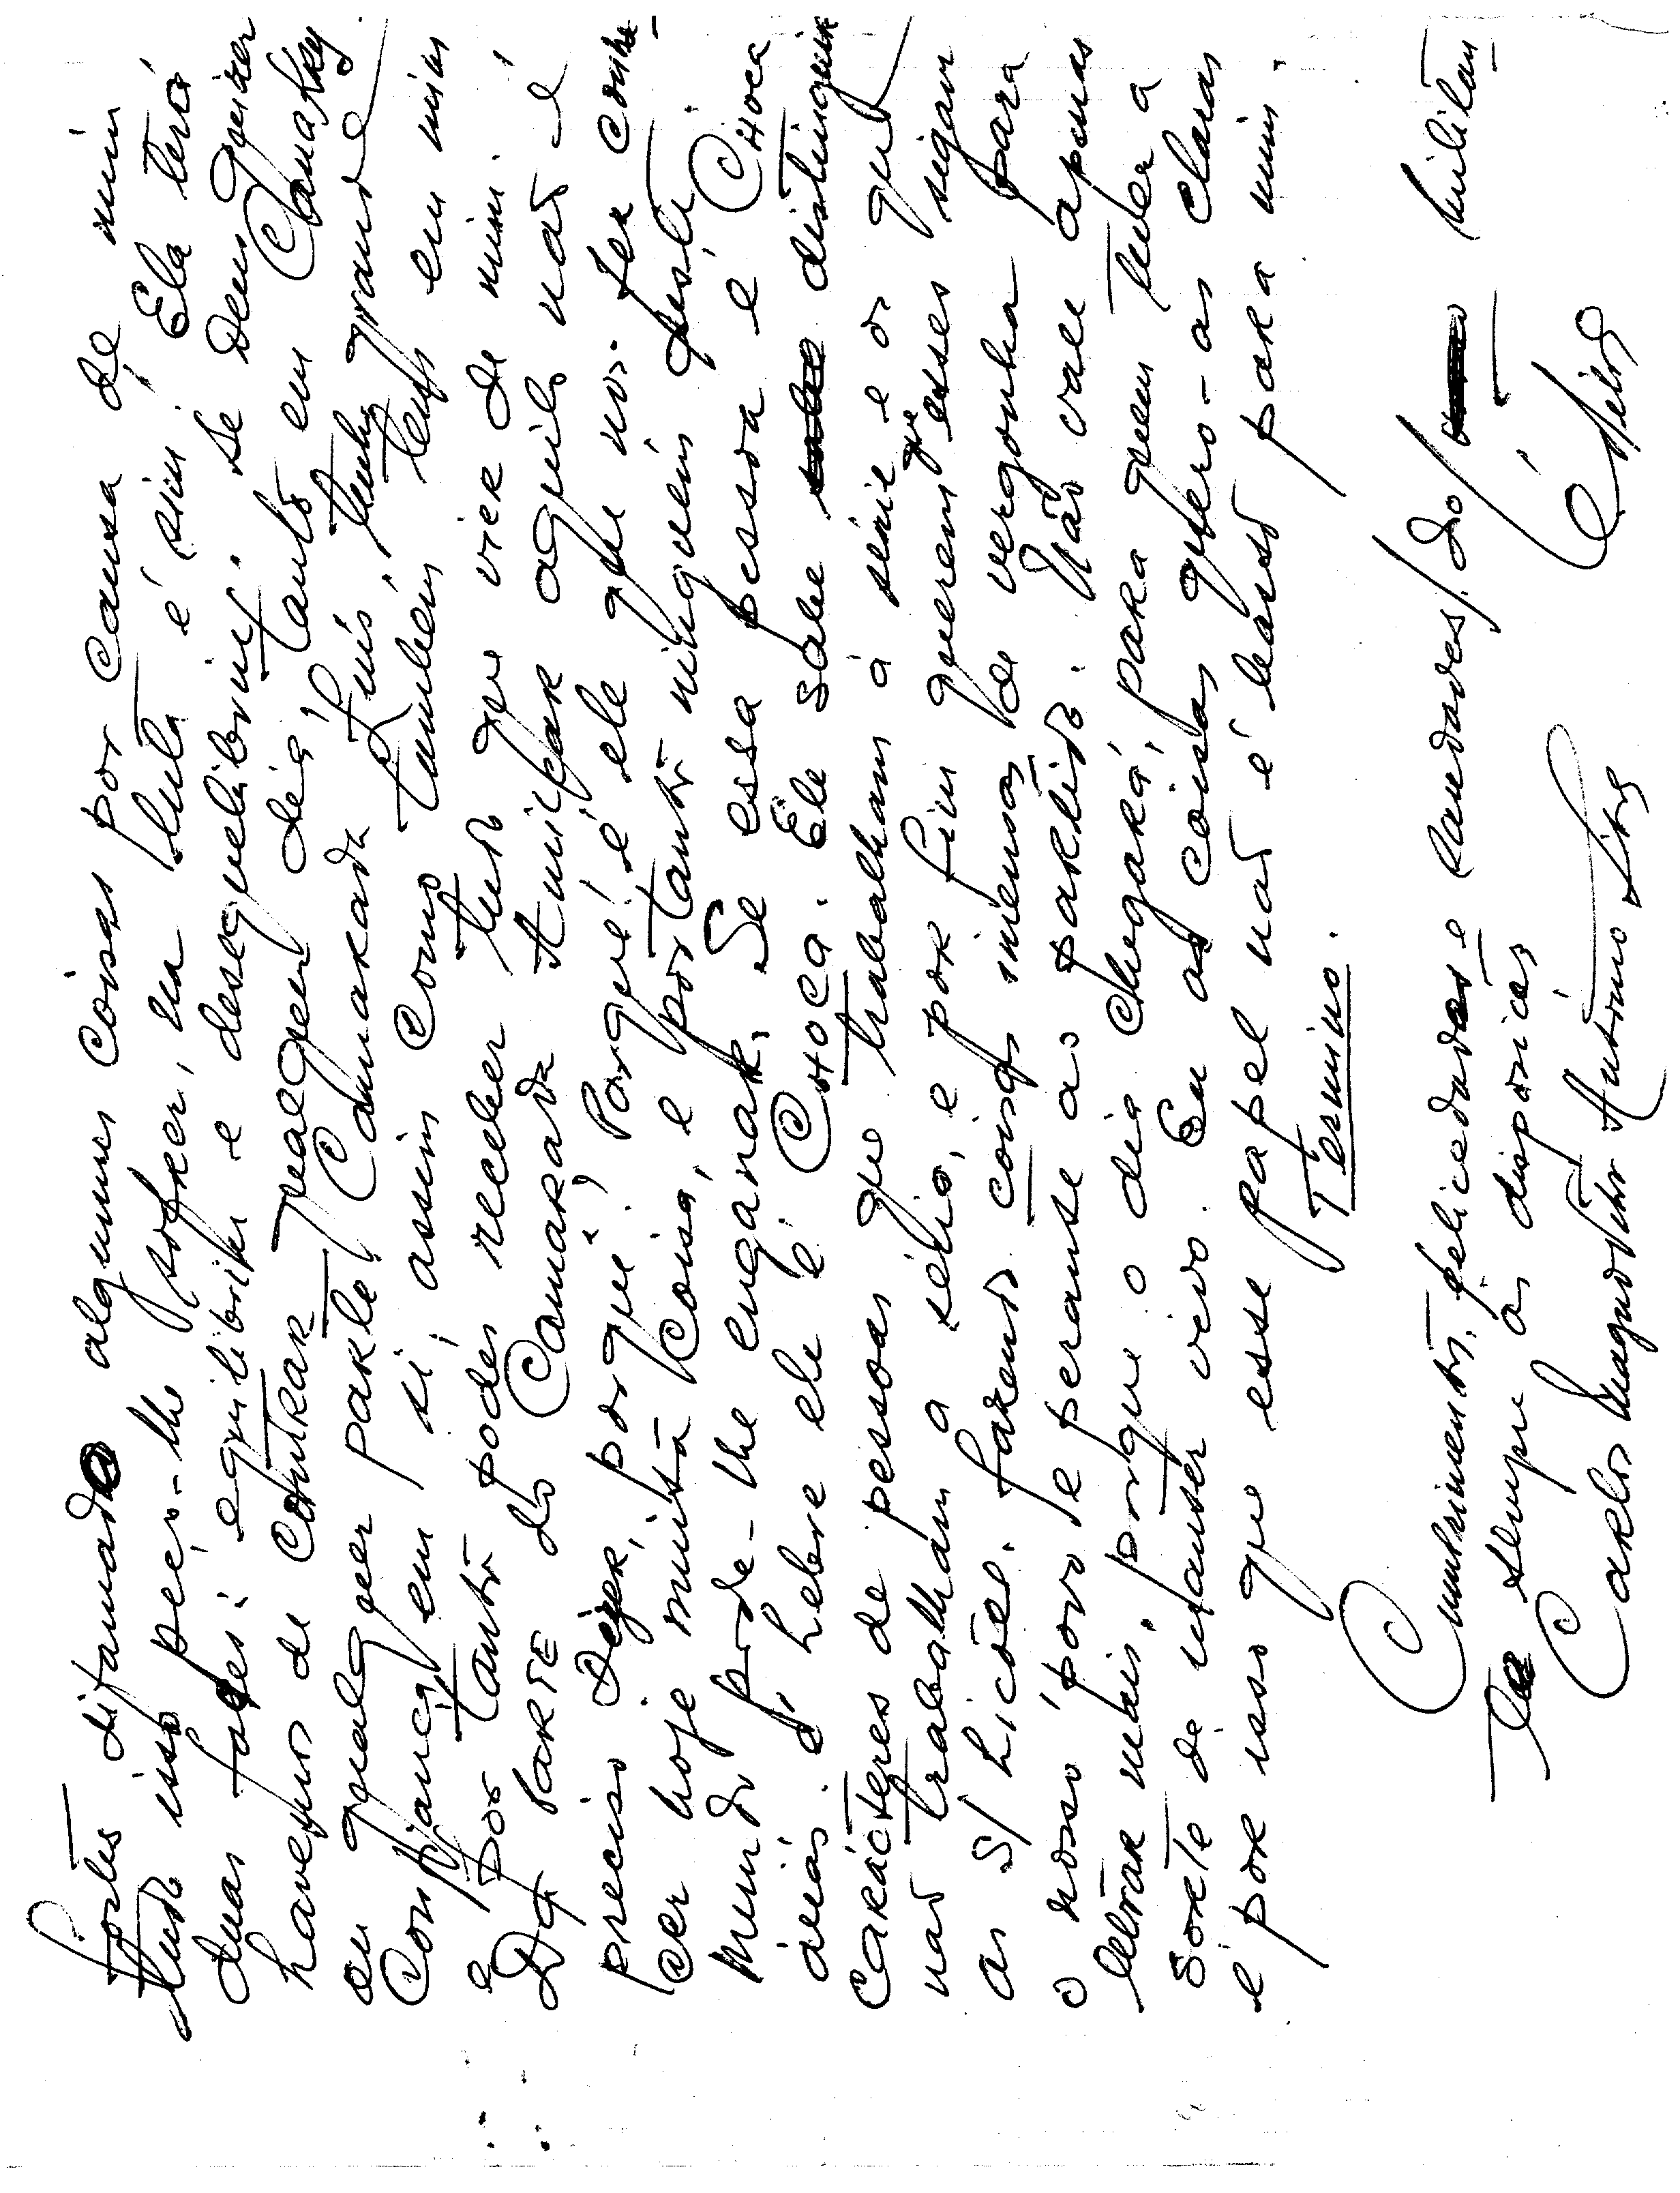 fostes difamado algumas coisas por causa de mim
tudo isso peço-lhe sofrer, na luta é sim! Ela terá
duas fases: equilíbrio e desequilíbrio. Se Deus quizer
havemos de contrar qualquer dia, tanto em Conakry
ou qualquer parte. Camarada Luís, tenho grande
confiança em si, assim como também tens em mim
e por tanto podes receber tudo que vier de mim.
Da PARTE do Camarada Amilcar aquilo não é
preciso Dizer, porquê? Porque é ele que nos fez conhe-
cer hoje muita coisa, e portanto ninguém neste
mundo pode-lhe enganar. Se essa pessoa é CHOCA
ou lebre ele é CHOCA. Ele sabe distinguir
carácteres de pessoas que trabalham à série e os que
não trabalham a sério, e por fim querem que esses sigam
as s/ lições. fazendo coisas imensas de vergonha para
o nosso povo e perante ao partido. Não vale apenas
ladrar mais, porque o dia chegará, para quem tiver a
sorte de manter vivo. Eu as coisas quero-as claras
e por isso que esse papel não é basto para mim.
Termino.
Cumprimentos, felicidades e saudades do militan-
te sempre às disposições
Carlos António